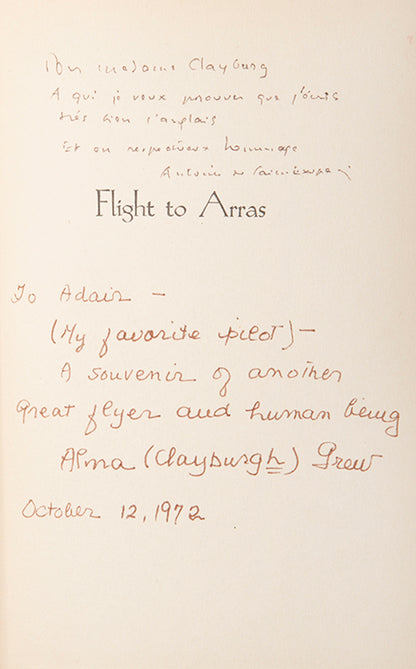 Pour madame Clayburg
A qui je veux prouver que j'écris
très bien l'anglais
Et en respectueux hommage
Antoine de Saint-Exupéry
Flight to Arras
To Adair —
(My favorite pilot) —
A souvenir of another
Great flyer and human being
Alma (Clayburgh) Grew
October 12, 1972